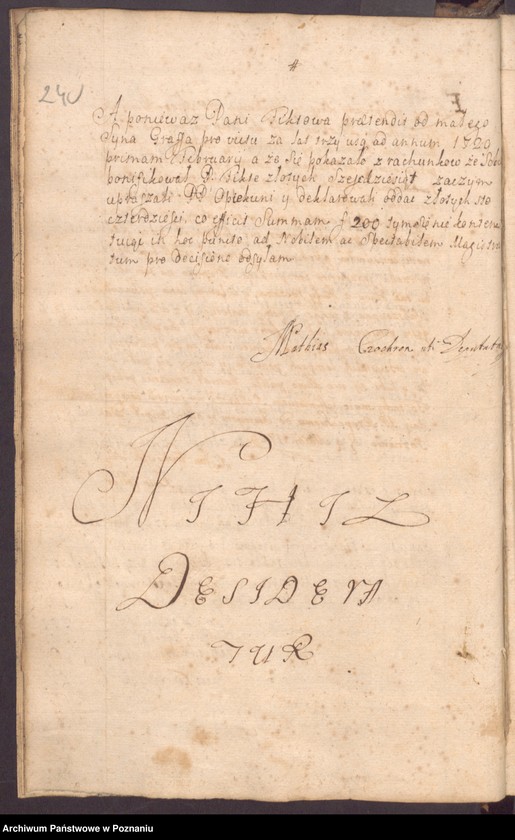 240
#
A poniewaz Pani Siktowa prætendit od małego
Syna Graffa pro victu za lat trzy usq ad annum 1700
primam February a ze się pokazało z rachunkow ze
bonifikował P. złotych Szescdziesiąt zaczym
upraszali PP Opiekuni y deklarowali oddac złotych sto
czterdziesci, co efficit Summam f 200 tym się nie konten
tuiąc ih hoc puncto ad Nobilem ac Spectabilem Magistra
tum pro decisione odsyłam
Mathias Czochron uti Deputat
NIHIL
DESIDERA
TUR
Archiwum Państwowe w Poznaniu